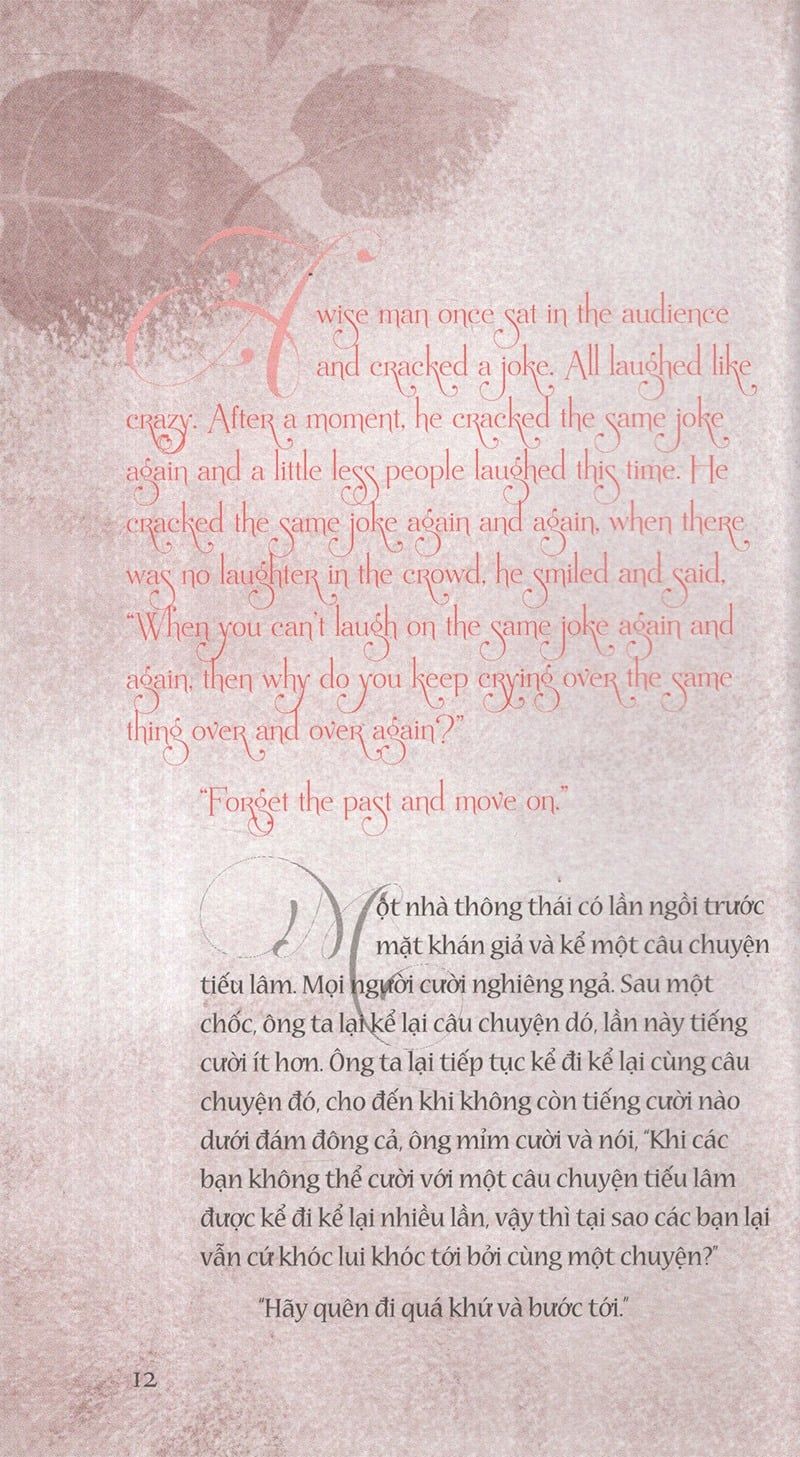 A wise man once sat in the audience
and cracked a joke. All laughed like
crazy. After a moment, he cracked the same joke
again and a little less people laughed this time. He
cracked the same joke again and again, when there
was no laughter in the crowd, he smiled and said,
“When you can't laugh on the same joke again and
again, then why do you keep crying over the same
thing over and over again?”
“Forget the past and move on.”
Một nhà thông thái có lần ngồi trước
mặt khán giả và kể một câu chuyện
tiếu lâm. Mọi người cười nghiêng ngả. Sau một
chốc, ông ta lại kể lại câu chuyện dó, lần này tiếng
cười ít hơn. Ông ta lại tiếp tục kể đi kể lại cùng câu
chuyện đó, cho đến khi không còn tiếng cười nào
dưới đám đông cả, ông mỉm cười và nói, “Khi các
bạn không thể cười với một câu chuyện tiếu lâm
được kể đi kể lại nhiều lần, vậy thì tại sao các bạn lại
vẫn cứ khóc lui khóc tới bởi cùng một chuyện?”
“Hãy quên đi quá khứ và bước tới.”
12